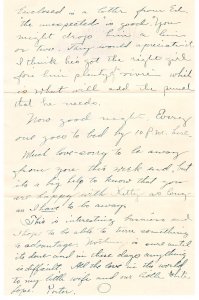 Enclosed is a letter from Ed.
The unexpected is good. You
might drop him a line
or two. They would appreciate it.
I think he's got the right girl
for him plenty of which
is what will add the
that he needs.
Now good night. Every
one goes to bed by 10 P.M. here.
Much love - sorry to be away
from you this week end, but
it's a big help to know that you
are happy with Kitty as long
as I have to be away.
This is interesting business and
I hope to be able to turn something
to advantage. Nothing is sure until
its done and in these days anything
is difficult. All the love in the world
to my both wife and our
hope. Porter.